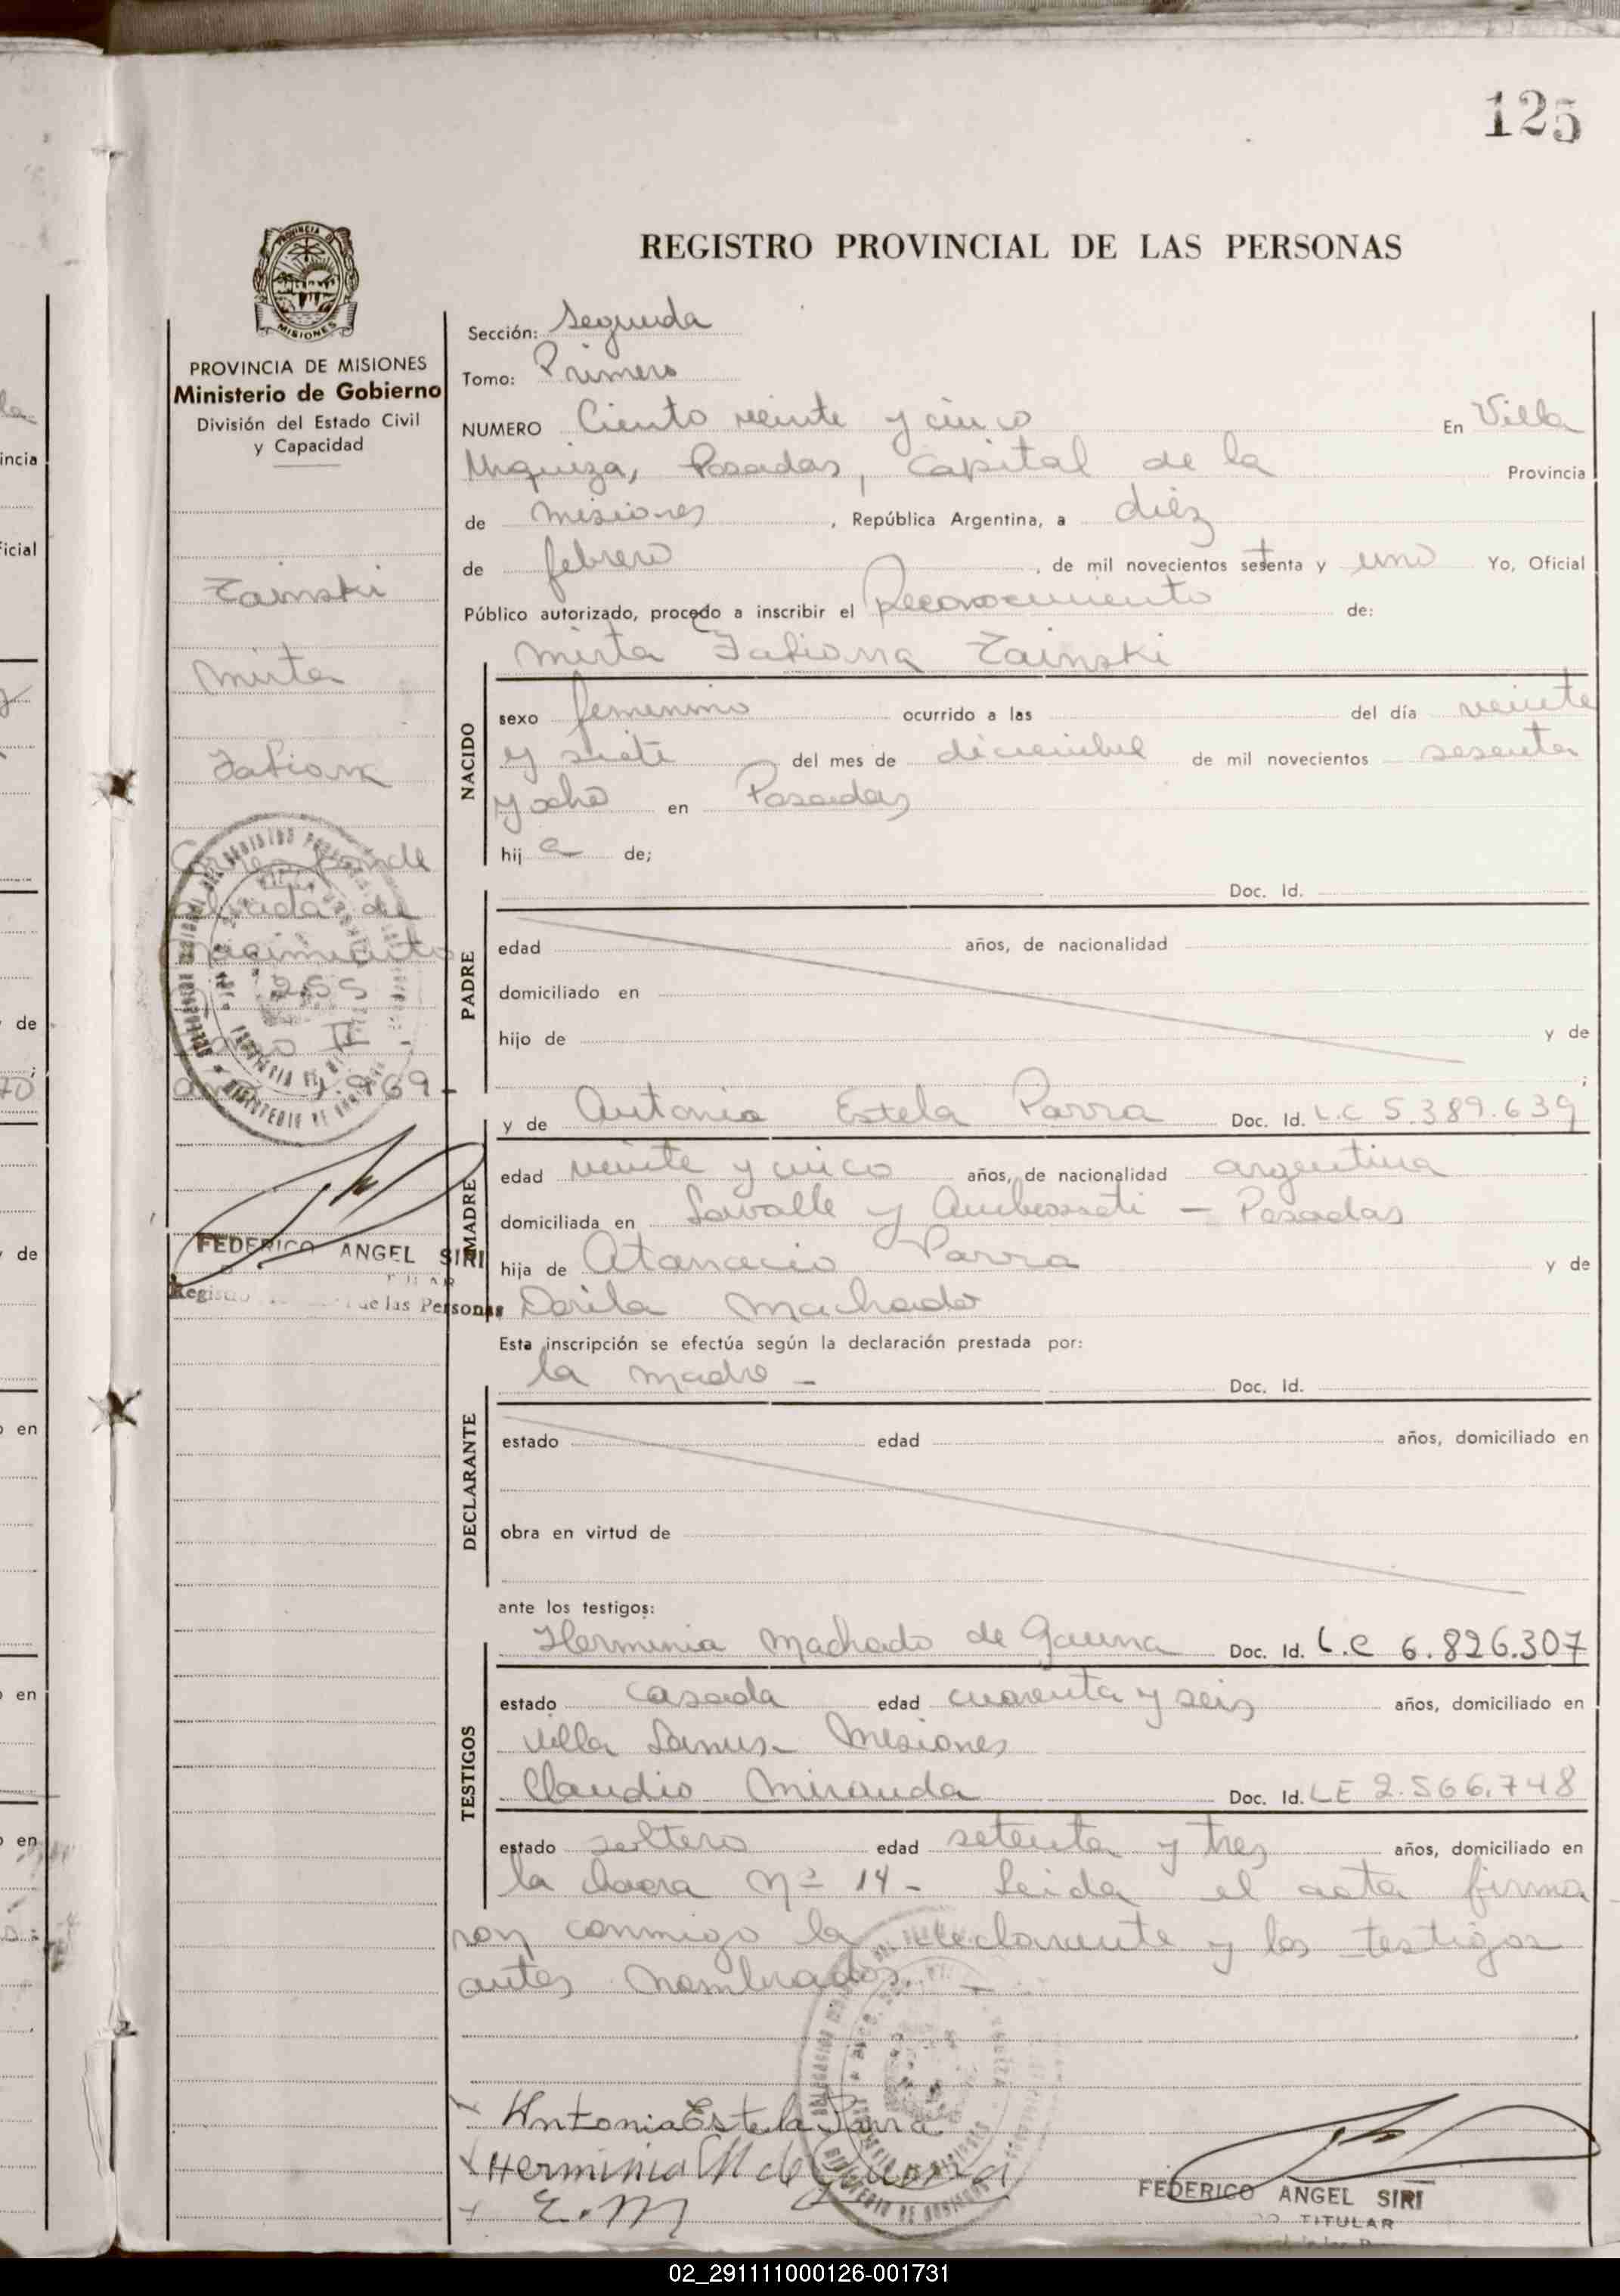 125
REGISTRO PROVINCIAL DE LAS PERSONAS
PROVINCIA DE MISIONES
Ministerio de Gobierno
División del Estado Civil
y Capacidad
Zainski
Mirta
Tatiana
Corresponde
al acta de
nacimiento
255
Tomo II -
año 1.969-
FEDERICO ANGEL SIRI
de las Personas
Sección: Segunda
Tomo: Primero
NUMERO Ciento veinte y cinco En Villa
Urquiza, Posadas, Capital de la Provincia
de Misiones , República Argentina, a diez
de febrero , de mil novecientos setenta y uno Yo, Oficial
Público autorizado, procedo a inscribir el Reconocimiento de:
Mirta Tatiana Zainski
NACIDO
sexo femenino ocurrido a las del día veinte
y siete del mes de diciembre de mil novecientos sesenta
y ocho en Posadas
hij a de;
PADRE
Doc. Id.
edad años, de nacionalidad
domiciliado en
hijo de y de
;
MADRE
y de Antonia Estela Parra Doc. Id. L.C 5.389.639
edad veinte y cinco años, de nacionalidad argentina
domiciliada en Lavalle y Ambrosseti - Posadas
hija de Atanacio Parra y de
Dorila Machado
Esta inscripción se efectúa según la declaración prestada por:
DECLARANTE
la madre - Doc. Id.
estado edad años, domiciliado en
obra en virtud de
ante los testigos:
TESTIGOS
Herminia Machado de Gauna Doc. Id. L.C 6.826.307
estado casada edad cuarenta y seis años, domiciliado en
Villa Lanus- Misiones
Claudio Miranda Doc. Id. LE 2.566.748
estado soltero edad setenta y tres años, domiciliado en
la chacra Nº 14 - Leida el acta firma
ron conmigo la declarante y los testigos
antes nombrados. -
Antonia Estela Parra
Herminia M de Gauna
E.M
FEDERICO ANGEL SIRI
TITULAR
02_291111000126-001731